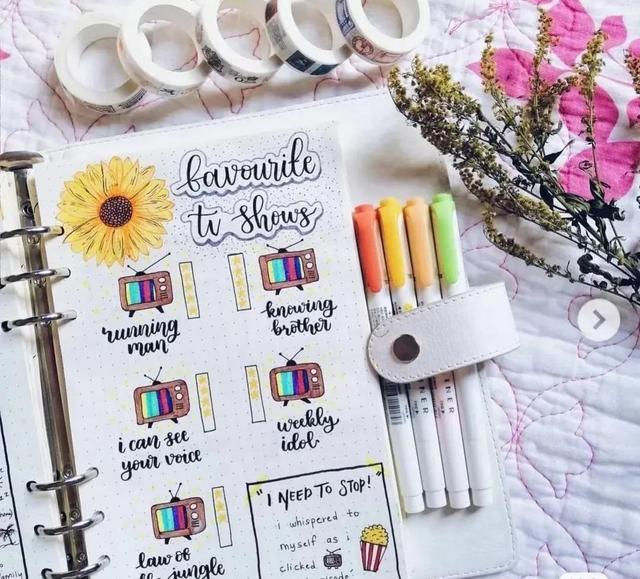 favourite
tv shows
running
man
knowing
brother
i can see
your voice
weekly
idol
law of
jungle
"I NEED TO STOP!"
i whispered to
myself as i
clicked
family